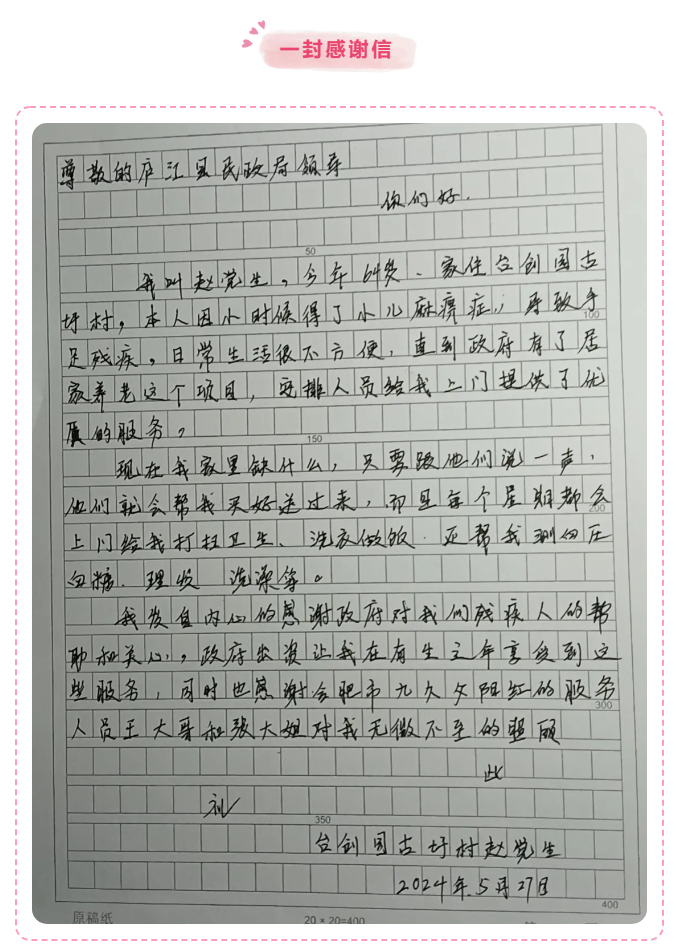 一封感谢信
尊敬的庐江县民政局领导
你们好.
50
我叫赵党生,今年64岁、家住台创园古
圩村,本人因小时候得了小儿麻痹症,导致手
100
足残疾,日常生活很不方便,直到政府有了居
家养老这个项目,安排人员给我上门提供了优
质的服务。
150
现在我家里缺什么,只要跟他们说一声,
他们就会帮我买好送过来,而且每个星期都会
200
上门给我打扫卫生、洗衣做饭.还帮我测血压
血糖、理发 洗澡等。
我发自内心的感谢政府对我们残疾人的帮
助和关心,政府出资让我在有生之年享受到这
些服务,同时也感谢合肥市九久夕阳红的服务
300
人员王大哥和张大姐对我无微不至的照顾
此
礼
350
台创园古圩村赵党生
2024年5月27日
400
原稿纸
20×20=400